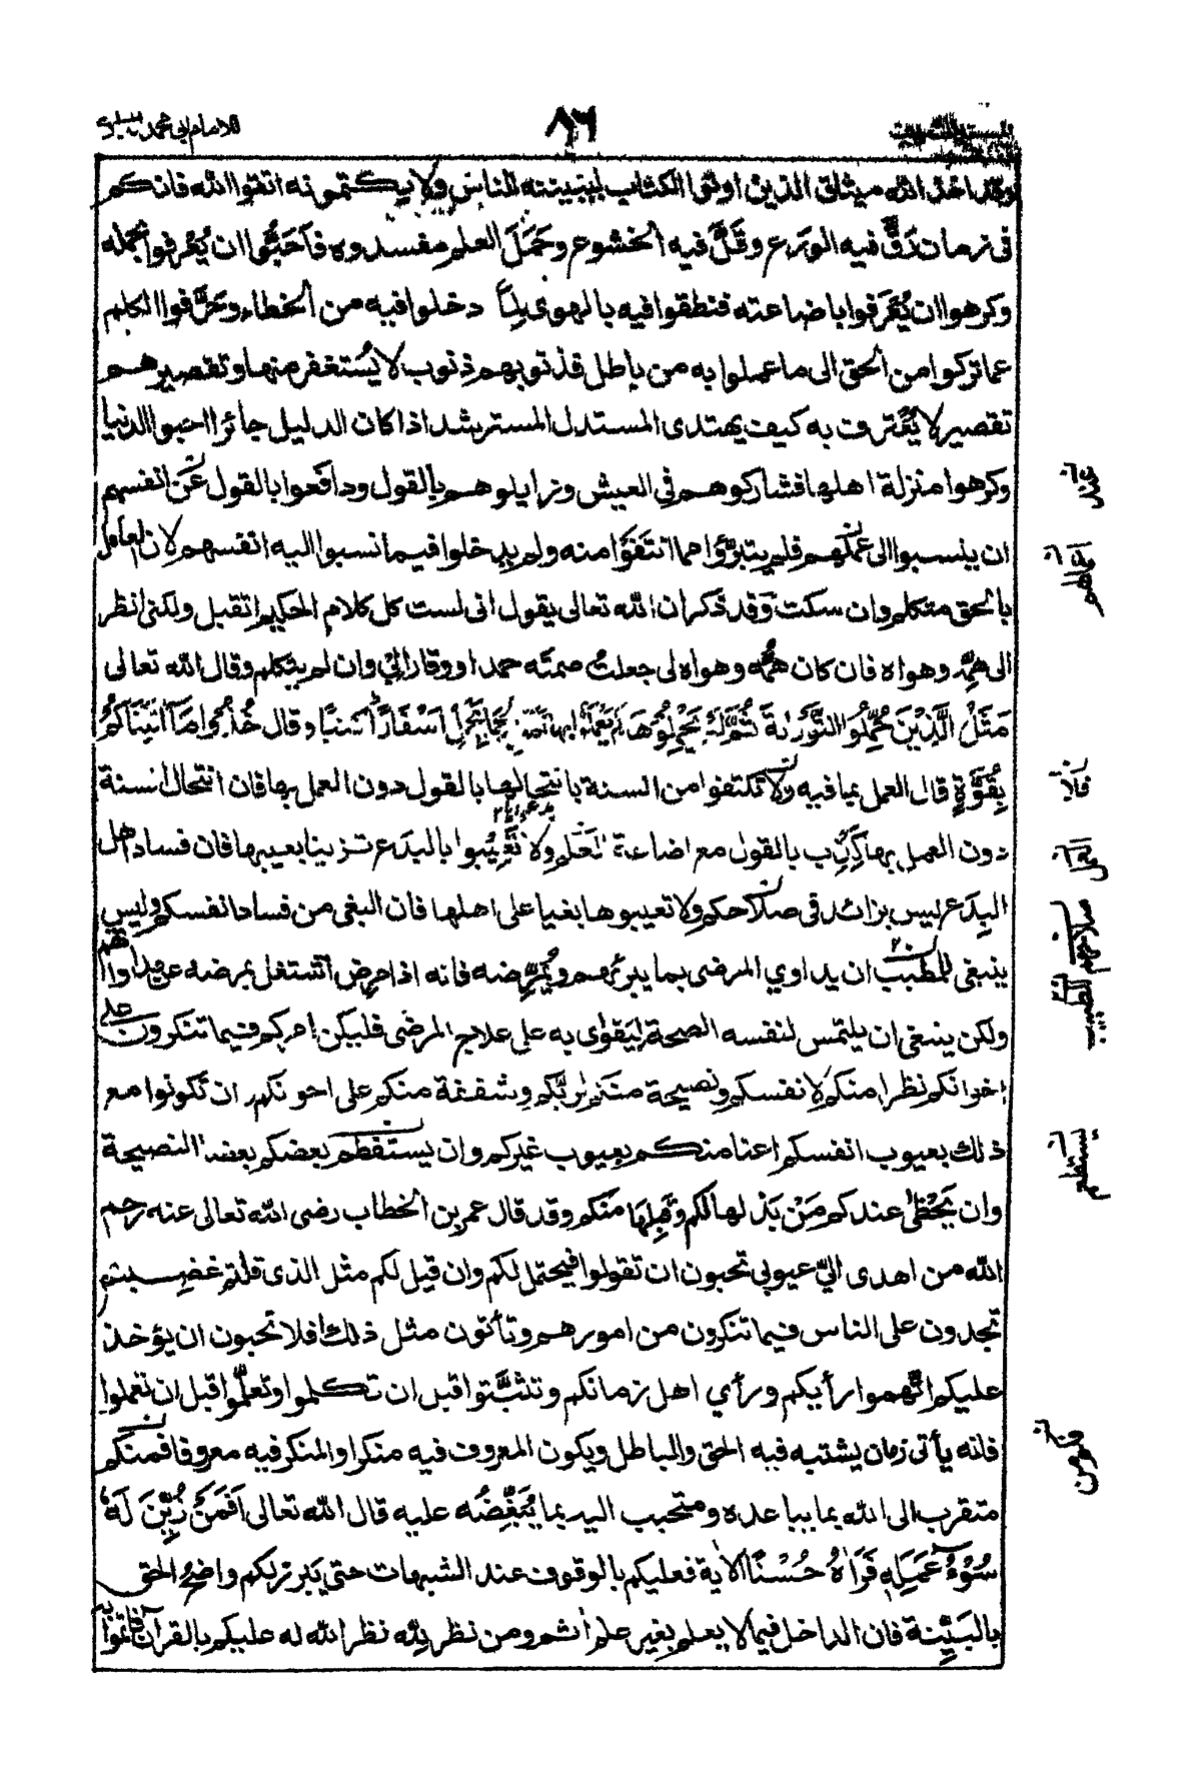 للامام ابي محمد
٨٦
وقد اخذ الله ميثاق الذين اوتوا الكتاب ليبيننه للناس ولا يكتمونه اتقوا الله فانكم
فى زمان رَقَّ فيه الورع وقَلَّ فيه الخشوع وحَمَلَ العلم مفسدوه فاَحَبُّوا ان يُعْرفوا بحمله
وكرهوا ان يُعْرَفوا باضاعته فنطقوا فيه بالهوى لِمَا دخلوا فيه من الخطاء وحَرَّفوا الكلم
عما تركوا من الحق الى ما عملوا به من باطل فذنوبهم ذنوب لا يُستغفر منها وتقصيرهم
تقصير لا يُعْترف به كيف يهتدى المستدل المسترشد اذا كان الدليل جائرا احبوا الدنيا
وكرهوا منزلة اهلها فشاركوهم في العيش وزايلوهم بالقول ودافَعوا بالقول عَن انفسهم
ان ينسبوا الى عملهم فلم يتبرَّؤا مما انتفَوَا منه ولم يدخلوا فيما نسبوا اليه انفسهم لان العامل
بالحق متكلم وان سكت وَقد ذكر ان الله تعالى يقول انى لست كل كلام الحكيم اتقبل ولكنى انظر
الى همِّه وهواه فان كان همُّه وهواه لى جعلتُ صمته حمدا ووقارا لِيْ وان لم يتكلم وقال الله تعالى
مَثَلُ الَّذِيْنَ حُمِّلُوا التَّوْرٰىةَ ثُمَّ لَمْ يَحْمِلُوْهَا لم يَعْمَلوْا بها كمَثَلِ الْحِمَارِ يَحْمِلُ اَسْفَارًا كتبًا وقال خُذُوْا مَآ اٰتَيْنَاكُمْ
بِقُوَّةٍ قال العمل بما فيه ولا تكتفوا من السنة بانتحالها بالقول دون العمل بها فان انتحال السنة
دون العمل بها كَذِب بالقول مع اضاعة العلم ولا تَعِيْبوا بالبدع تزينا بعيبها فان فساد اهل
البِدَع ليس بزائد فى صلاحكم ولا تعيبوها بغيا على اهلها فان البغى من فساد انفسكم وليس
ينبغى للمطبب ان يداوي المرضى بما يبرئهم ويُمَرِّضه فانه اذا مرض اشتغل بمرضه عن مداواتهم
ولكن ينبغى ان يلتمس لنفسه الصحة لِيَقوٰى به على علاج المرضى فليكن امركم فيما تنكرون على
اخوانكم نظرا منكم لانفسكم ونصيحة منكم لربِّكم وشفقة منكم على اخونكم ان تكونوا مع
ذلك بعيوب انفسكم اعنا منكم بعيوب غيركم وان يستفطم بعضكم بعضا النصيحة
وان يَحْظٰى عندكم مَنْ بَذَلها لكم وقَبِلها منكم وقد قال عمر بن الخطاب رضى الله تعالى عنه رحم
الله من اهدى اليّ عيوبي تحبون ان تقولوا فيحتمل لكم وان قيل لكم مثل الذى قلتم غضِبتم
تجدون على الناس فيما تنكرون من امورهم وتأتون مثل ذلك افلا تحبون ان يؤخذ
عليكم اتَّهموا رأيكم ورأي اهل زمانكم وتثبَّتوا قبل ان تكلموا وتعلَّموا قبل ان تعملوا
فانه يأتى زمان يشتبه فيه الحق والباطل ويكون المعروف فيه منكرا والمنكر فيه معروفا فمنكم
متقرب الى الله بما يباعده ومتحبب اليه بما يُبَغِّضُه عليه قال الله تعالى اَفَمَنْ زُيِّنَ لَهٗ
سُوْٓءُ عَمَلِهٖ فَرَاٰهُ حُسْنًا الاٰية فعليكم بالوقوف عند الشبهات حتى يَبرز لكم واضحُ الحق
بالبَيِّنة فان الداخل فيما لا يعلم بغير علم اٰثم ومن نظر لِلّٰه نظر الله له عليكم بالقراٰن فأتموا به
عند
العلم
فلا
العمل
صلاحهم
للطبيب
يستطعم
فكم من